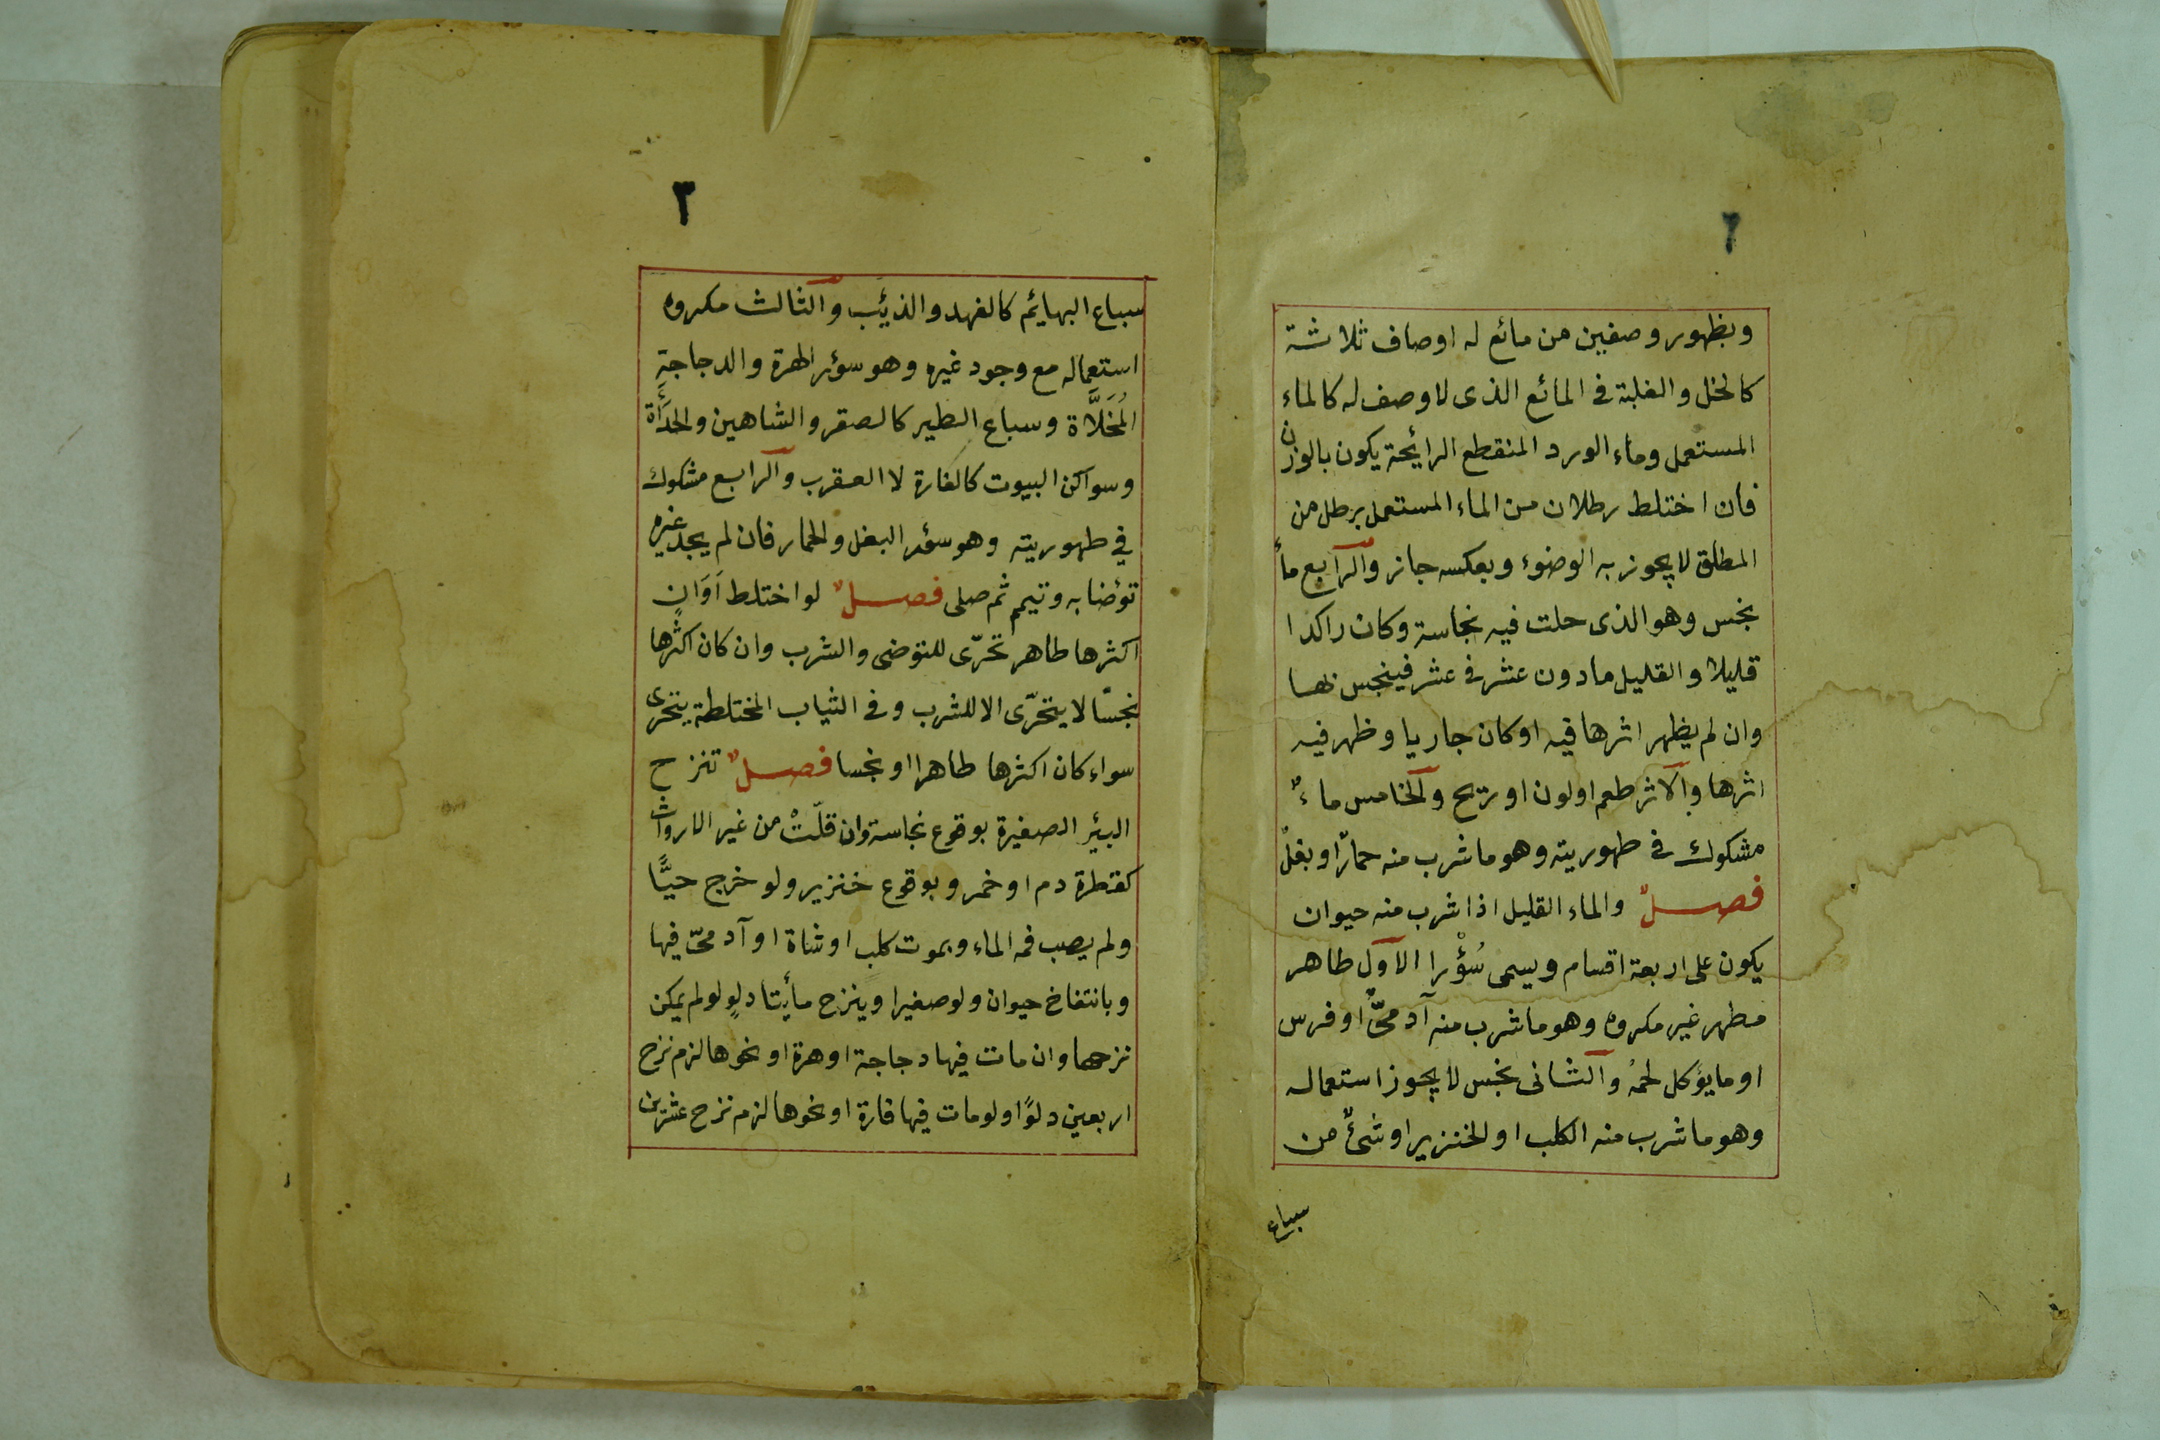 ٢
وبظهور وصفين من مائع له اوصاف ثلاثة
كالخل والغلبة فى المائع الذى لا وصف له كالماء
المستعمل وماء الورد المنقطع الرايحة يكون بالوزن
فان اختلط رطلان من الماء المستعمل برطل من
المطلق لا يجوز به الوضوء وبعكسه جاز والرابع ماء
نجس وهو الذى حلت فيه نجاسة وكان راكدا
قليلا والقليل ما دون عشر فى عشر فينجس بها
وان لم يظهر اثرها فيه او كان جاريا وظهر فيه
اثرها والاثر طعم او لون او ريح والخامس ماءٌ
مشكوك فى طهوريته وهو ما شرب منه حمارٌ او بغلٌ
فصلٌ والماء القليل اذا شرب منه حيوان
يكون على اربعة اقسام ويسمى سُؤْرا الاول طاهر
مطهر غير مكروه وهو ما شرب منه آدمىٌّ او فرس
او ما يؤكل لحمهُ والثانى نجس لا يجوز استعماله
وهو ما شرب منه الكلب او الخنزير او شئٌ من
سباع
٣
سباع البهائم كالفهد والذئيب والثالث مكروه
استعماله مع وجود غيره وهو سؤر الهرة والدجاجةِ
المُخَلَّاة وسباع الطير كالصقر والشاهين والحدَأَة
وسواكن البيوت كالفارة لا العقرب والرابع مشكوك
في طهوريته وهو سؤر البغل والحمار فان لم يجد غيره
توٴضا به وتيمم ثم صلى فصلٌ لو اختلط اَوَانٍ
اكثرها طاهر تحرّى للتوضى والشرب وان كان اكثرها
نجسًا لا يتحرّى الا للشرب وفى الثياب المختلطة يتحرى
سواء كان اكثرها طاهرا او نجسا فصلٌ تنزح
البئر الصغيرة بوقوع نجاسة وان قلّتْ من غير الارواث
كقطرة دم او خمر وبوقوع خنزير ولو خرج حيًّا
ولم يصب فمه الماء وبموت كلب او شاة او آدمىّ فيها
وبانتفاخ حيوان ولو صغيرا وينزح مأيتا دلوٍ لو لم يمكن
نزحها وان مات فيها دجاجة او هرة او نحوها لزم نزح
اربعين دلوًا ولو مات فيها فارة او نحوها لزم نزح عشرين